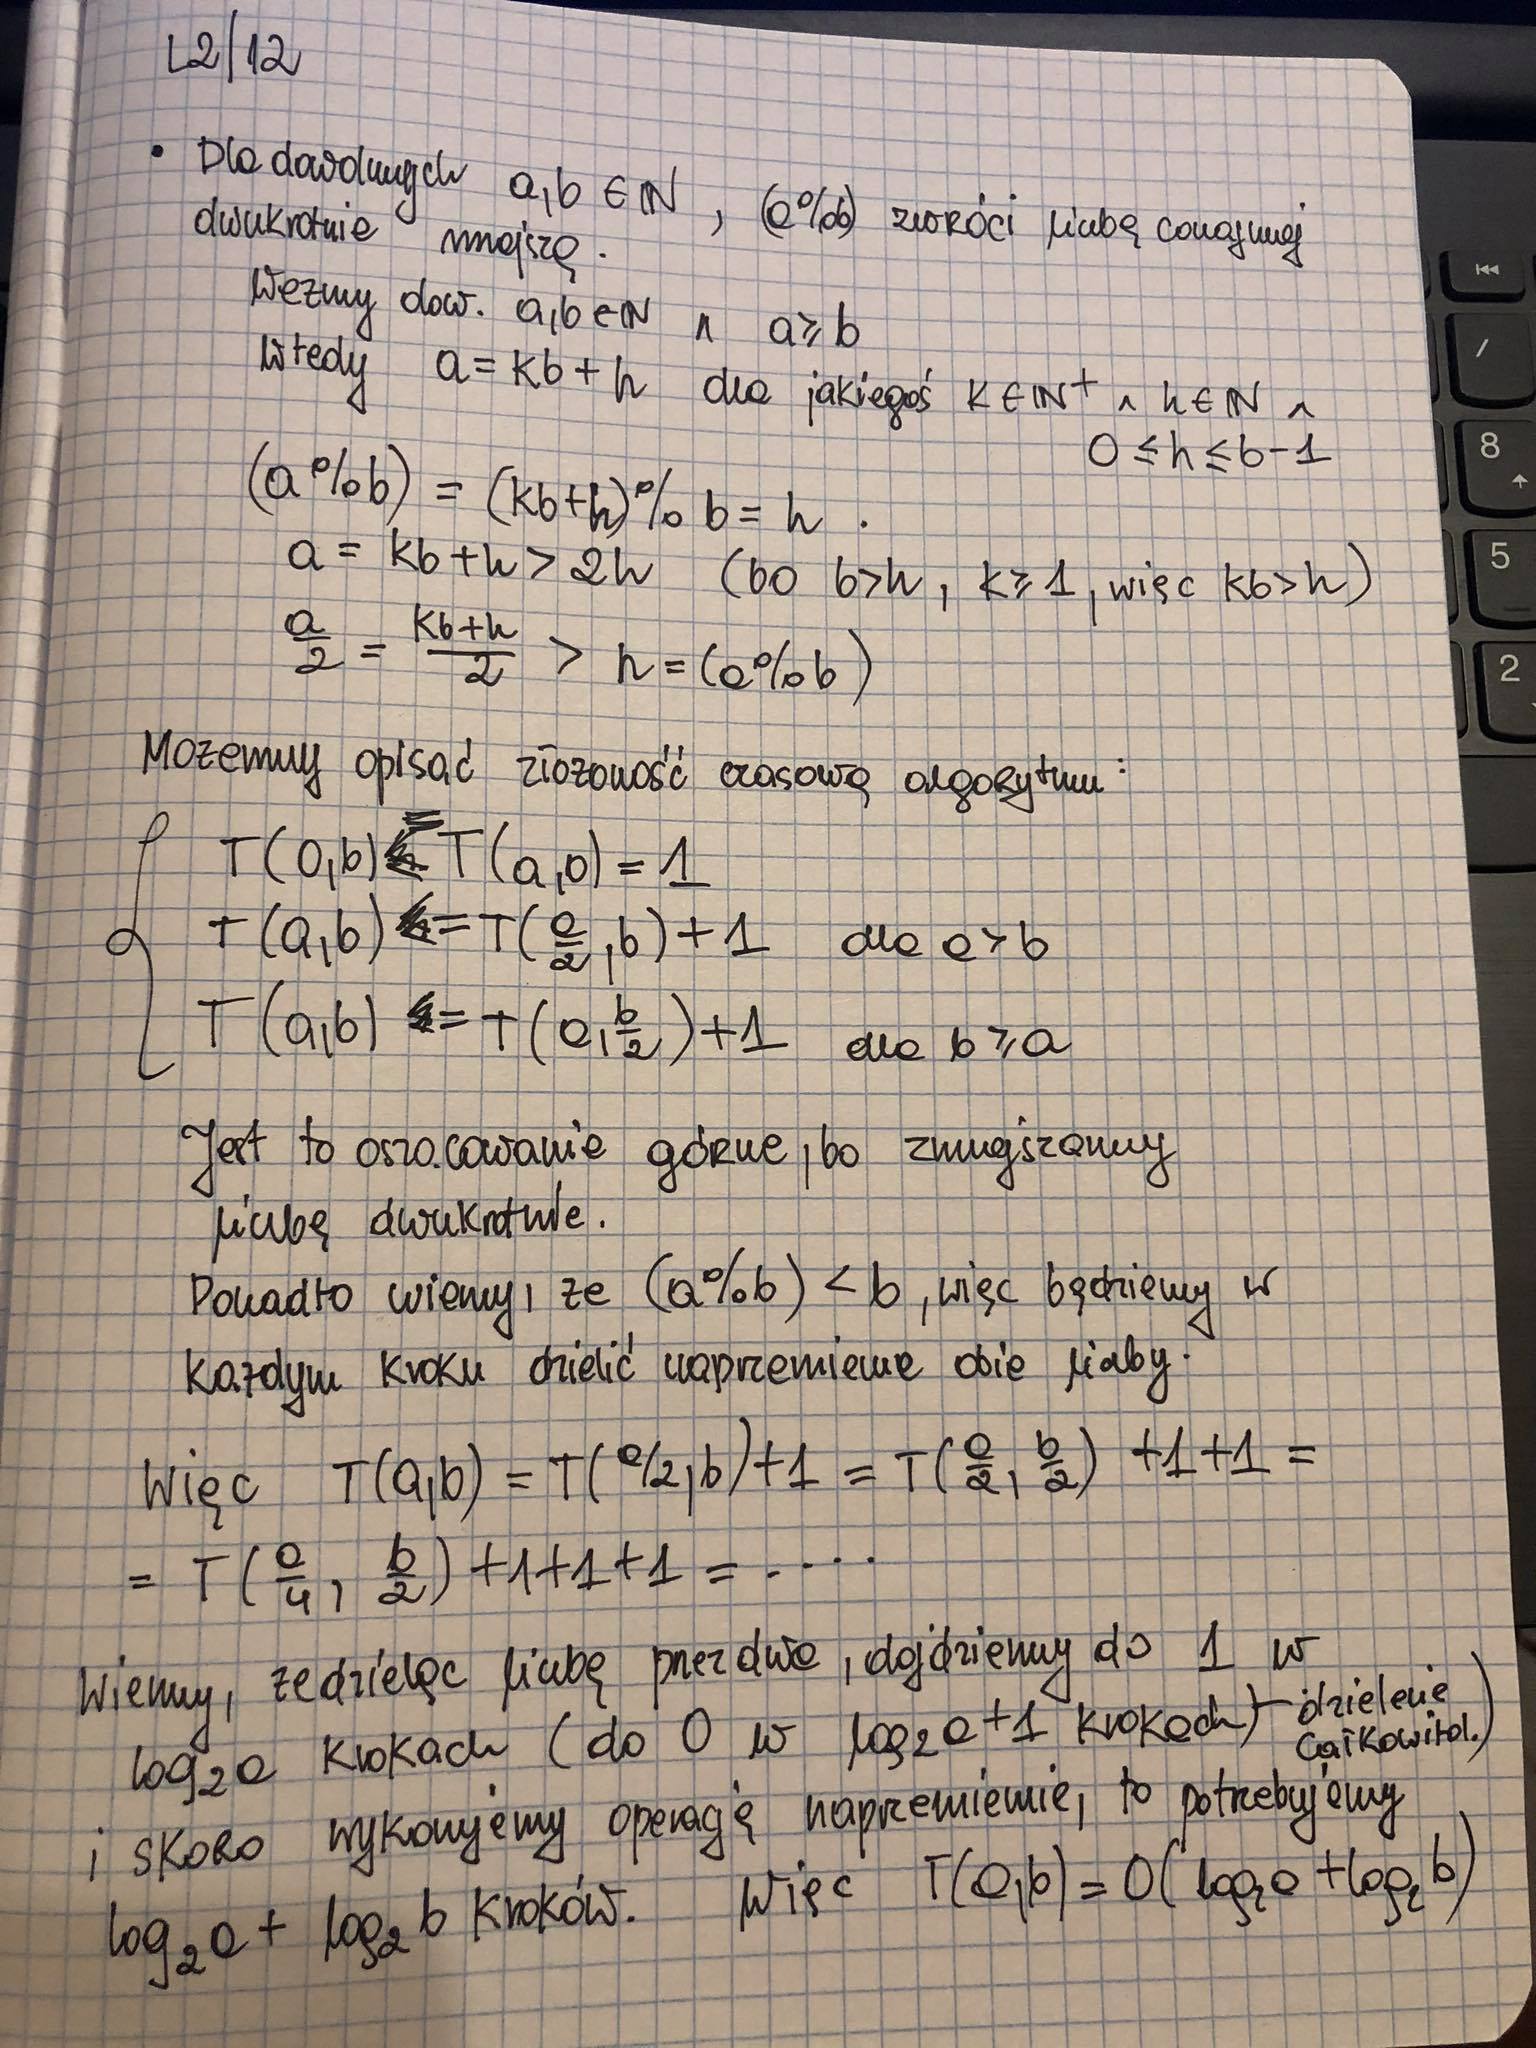 L2/12
• Dla dowolnych a,b ∈ ℕ, (a%b) zwróci liczbę conajmniej
dwukrotnie mniejszą.
Weźmy dow. a,b ∈ ℕ ∧ a ≥ b
Wtedy a = kb + h dla jakiegoś k ∈ ℕ⁺ ∧ h ∈ ℕ ∧
0 ≤ h ≤ b-1
(a%b) = (kb+h)%b = h.
a = kb+h > 2h (bo b>h, k≥1, więc kb>h)
a/2 = (kb+h)/2 > h = (a%b)
Możemy opisać złożoność czasową algorytmu:
T(0,b) = T(a,0) = 1
T(a,b) = T(a/2, b) + 1 dla a > b
T(a,b) = T(a, b/2) + 1 dla b ≥ a
Jest to oszacowanie górne, bo zmniejszamy
liczbę dwukrotnie.
Ponadto wiemy, że (a%b) < b, więc będziemy w
każdym kroku dzielić naprzemienne obie liczby.
Więc T(a,b) = T(a/2, b) + 1 = T(a/2, b/2) + 1 + 1 =
= T(a/4, b/2) + 1 + 1 + 1 = .....
Wiemy, że dzieląc liczbę przez dwa, dojdziemy do 1 w
log₂a krokach (do 0 w log₂a + 1 krokach) - dzielenie
całkowitol.)
i skoro wykonujemy operację naprzemiennie, to potrzebujemy
log₂a + log₂b kroków. Więc T(a,b) = O(log₂a + log₂b)
/
8
5
2